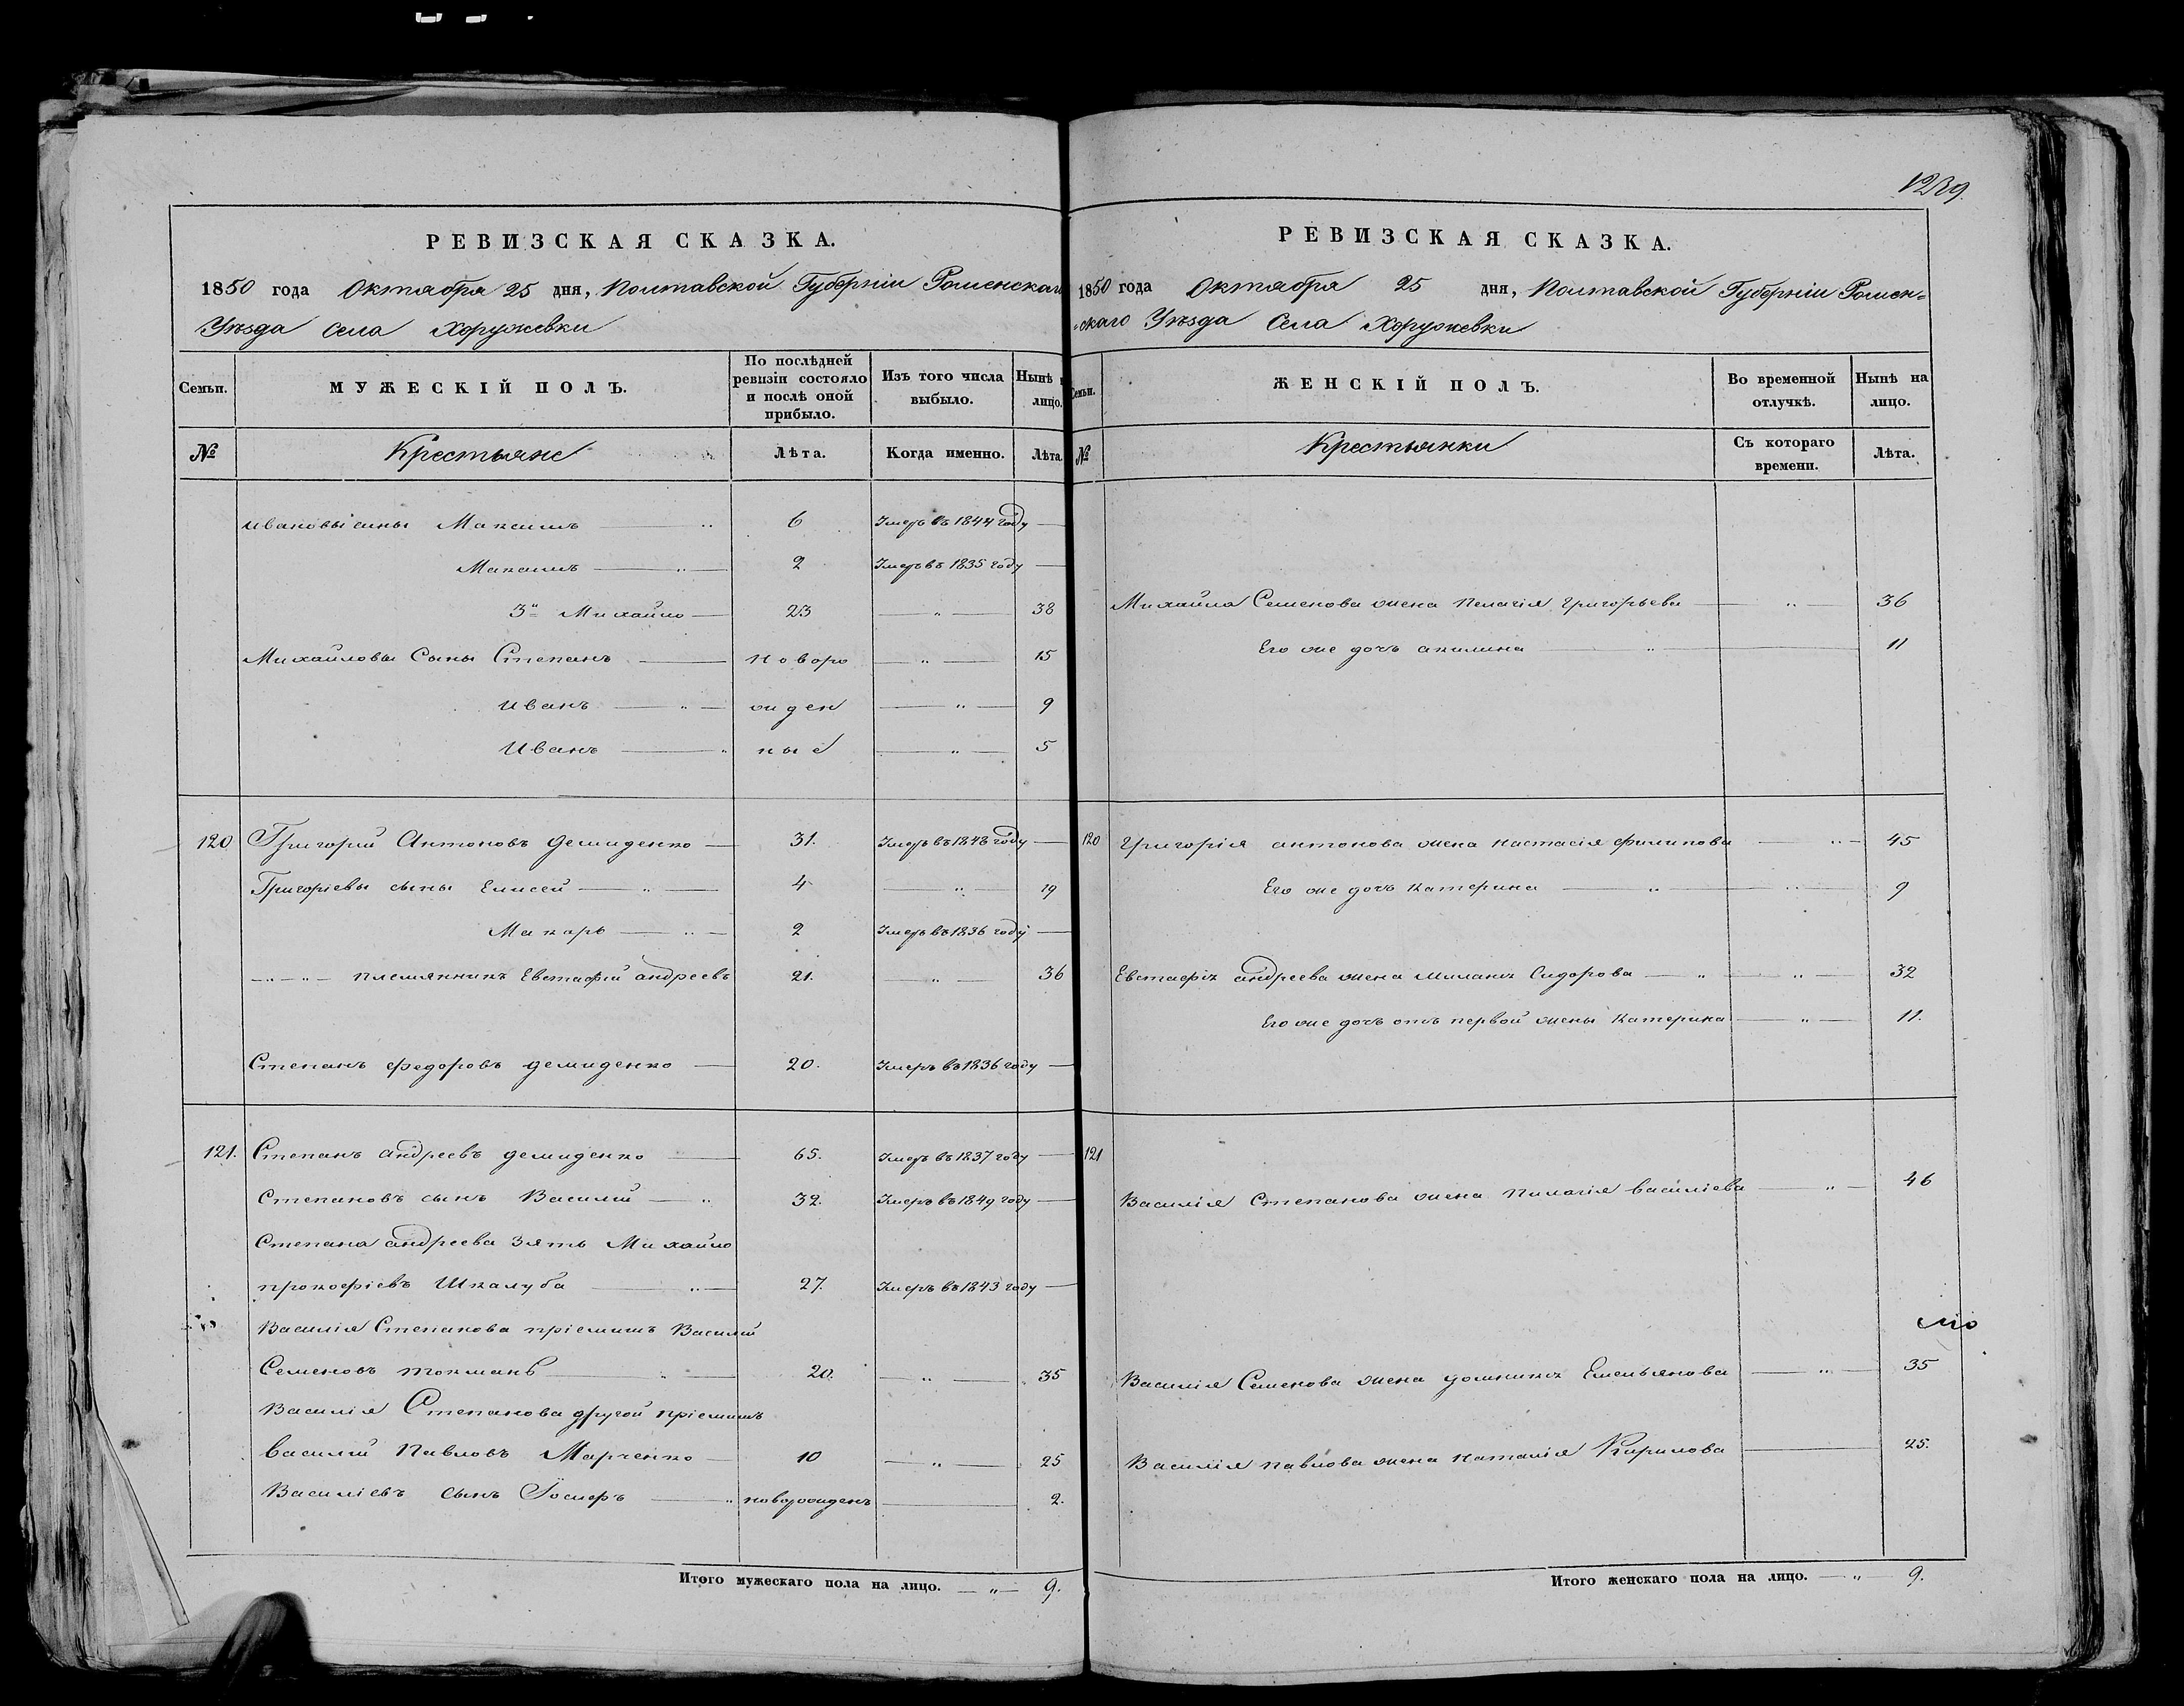 1239.
РЕВИЗСКАЯ СКАЗКА.
1850 года Октября 25 дня, Полтавской Губерніи Роменскаго
Уѣзда Села Хоружевки
Семьи. МУЖЕСКІЙ ПОЛЪ. По послѣдней ревизіи состояло и послѣ оной прибыло. Изъ того числа выбыло. Нынѣ на лицо.
№ Крестьяне Лѣта. Когда именно. Лѣта
Ивановы сыны Максимъ — " 6 Умеръ въ 1844 году —
Максимъ — " — 2 Умеръ въ 1835 году —
3й Михайло — 23 — " — 38
Михайловы Сыны Степанъ — новоро — " — 15
Иванъ — " — жден — " — 9
Иванъ — " ные — " — 5
120 Григорий Антоновъ Демиденко — 31. Умеръ въ 1848 году —
Григоріевы сыны Елисей — " — 4 — " — 19
Макаръ — " — 2 Умеръ въ 1836 году —
— " — " — племянникъ Евстафий андреевъ 21. — " — 36
Степанъ федоровъ демиденко — 20. Умеръ въ 1836 году —
121. Степанъ андреевъ демиденко — 65. Умеръ въ 1837 году —
Степановъ сынъ Василий — " 32. Умеръ въ 1849 году —
Степана андреева зять Михайло
прокофіевъ Шкалуба — " — 27. Умеръ въ 1843 году —
Василія Степанова пріемишъ Василий
Семеновъ токмань — " — 20. — " — 35
Василія Степанова другой пріемишъ
Василий Павловъ Марченко — 10 — " — 25
Василіевъ сынъ Іосифъ — " новорожденъ — 2.
Итого мужескаго пола на лицо. — " — 9.
РЕВИЗСКАЯ СКАЗКА.
1850 года Октября 25 дня, Полтавской Губерніи Ромен=
=скаго Уѣзда Села Хоружевки
Семьи. ЖЕНСКІЙ ПОЛЪ. Во временной отлучкѣ. Нынѣ на лицо.
№ Крестьянки Съ котораго времени. Лѣта.
Михайла Семенова жена Пелагія Григорьева — " — 36
Его же дочь акилина — " — 11
120 Григорія антонова жена настасія филипова — " — 45
Его же дочь катерина — " — " — 9
Евстафія андреева жена Милана Сидорова — " — " — 32
Его же дочь отъ первой жены катерина — " — 11.
121
Василія Степанова жена Пилагія Василіева — " — 46
Василія Семенова жена домникія Емельянова — " — 35
Василія павлова жена наталія Кирилова — 25.
Итого женскаго пола на лицо. — " — 9.